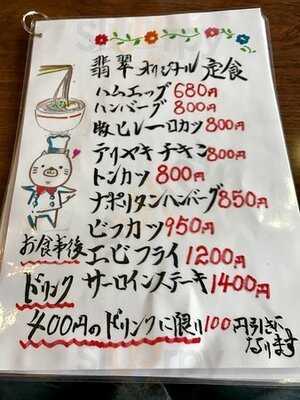 翡翠オリジナル定食
ハムエッグ680円
ハンバーグ800円
豚ヒレー口カツ800円
テリヤキチキン800円
トンカツ800円
ナポリタンハンバーグ850円
ビフカツ950円
エビフライ1200円
サーロインステーキ1400円
お食事後
ドリンク
400円のドリンクに限り100円引きに
なります